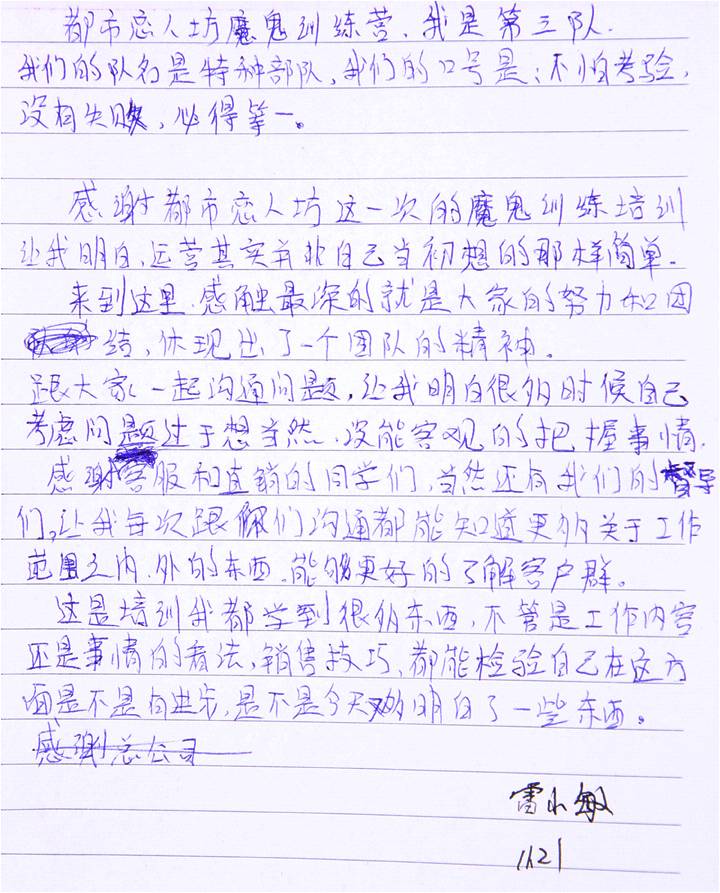 都市恋人坊魔鬼训练营,我是第三队.
我们的队名是特种部队,我们的口号是:不怕考验,
没有失败,必得第一。
感谢都市恋人坊这一次的魔鬼训练培训
让我明白,运营其实并非自己当初想的那样简单.
来到这里.感触最深的就是大家的努力和团
结,体现出了一个团队的精神。
跟大家一起沟通问题,让我明白很多时候自己
考虑问题过于想当然.没能客观的把握事情.
感谢客服和直销的同学们.当然还有我们的督导
们,让我每次跟你们沟通都能知道更多关于工作
范围之内.外的东西.能够更好的了解客户群。
这是培训我都学到很多东西,不管是工作内容
还是事情的看法,销售技巧,都能检验自己在这方
面是不是有进步,是不是今天又多明白了一些东西。
感谢总公司
雷小敏
1121